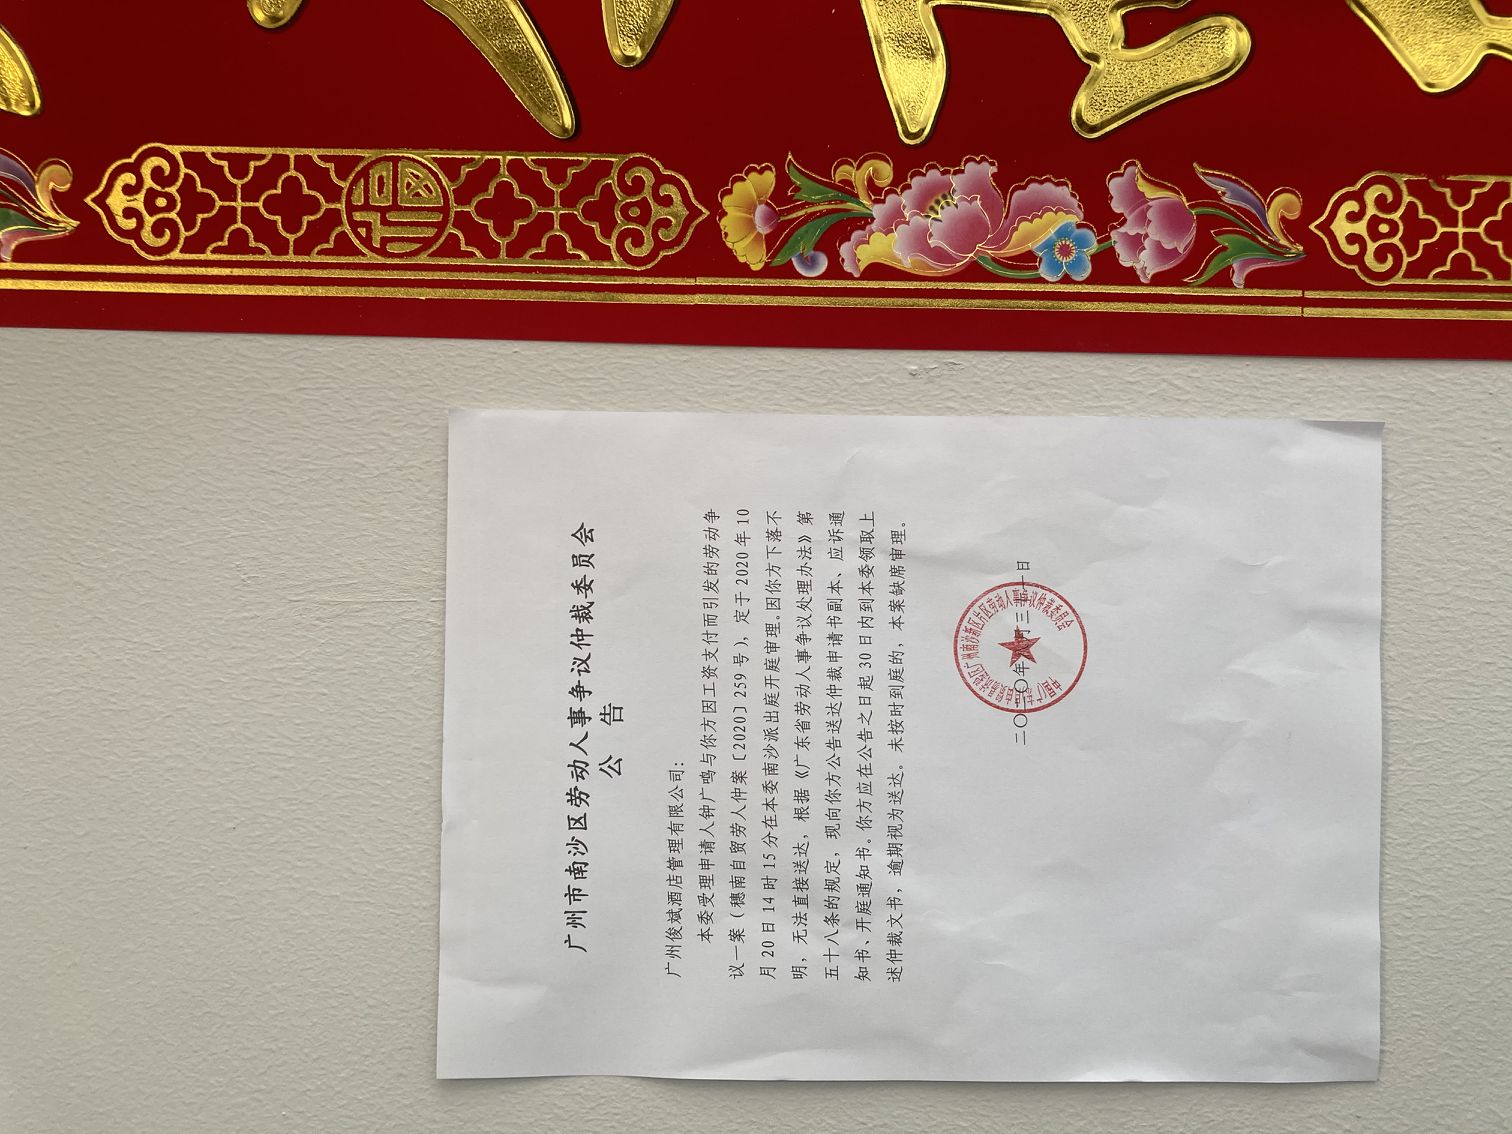 福
广州市南沙区劳动人事争议仲裁委员会
公 告
广州俊斌酒店管理有限公司：
本委受理申请人钟广鸣与你方因工资支付而引发的劳动争
议一案（穗南自贸劳人仲案〔2020〕259 号），定于 2020 年 10
月 20 日 14 时 15 分在本委南沙派出庭开庭审理。因你方下落不
明，无法直接送达，根据《广东省劳动人事争议处理办法》第
五十八条的规定，现向你方公告送达仲裁申请书副本、应诉通
知书、开庭通知书。你方应在公告之日起 30 日内到本委领取上
述仲裁文书，逾期视为送达。未按时到庭的，本案缺席审理。
二〇二〇年 月三十一日